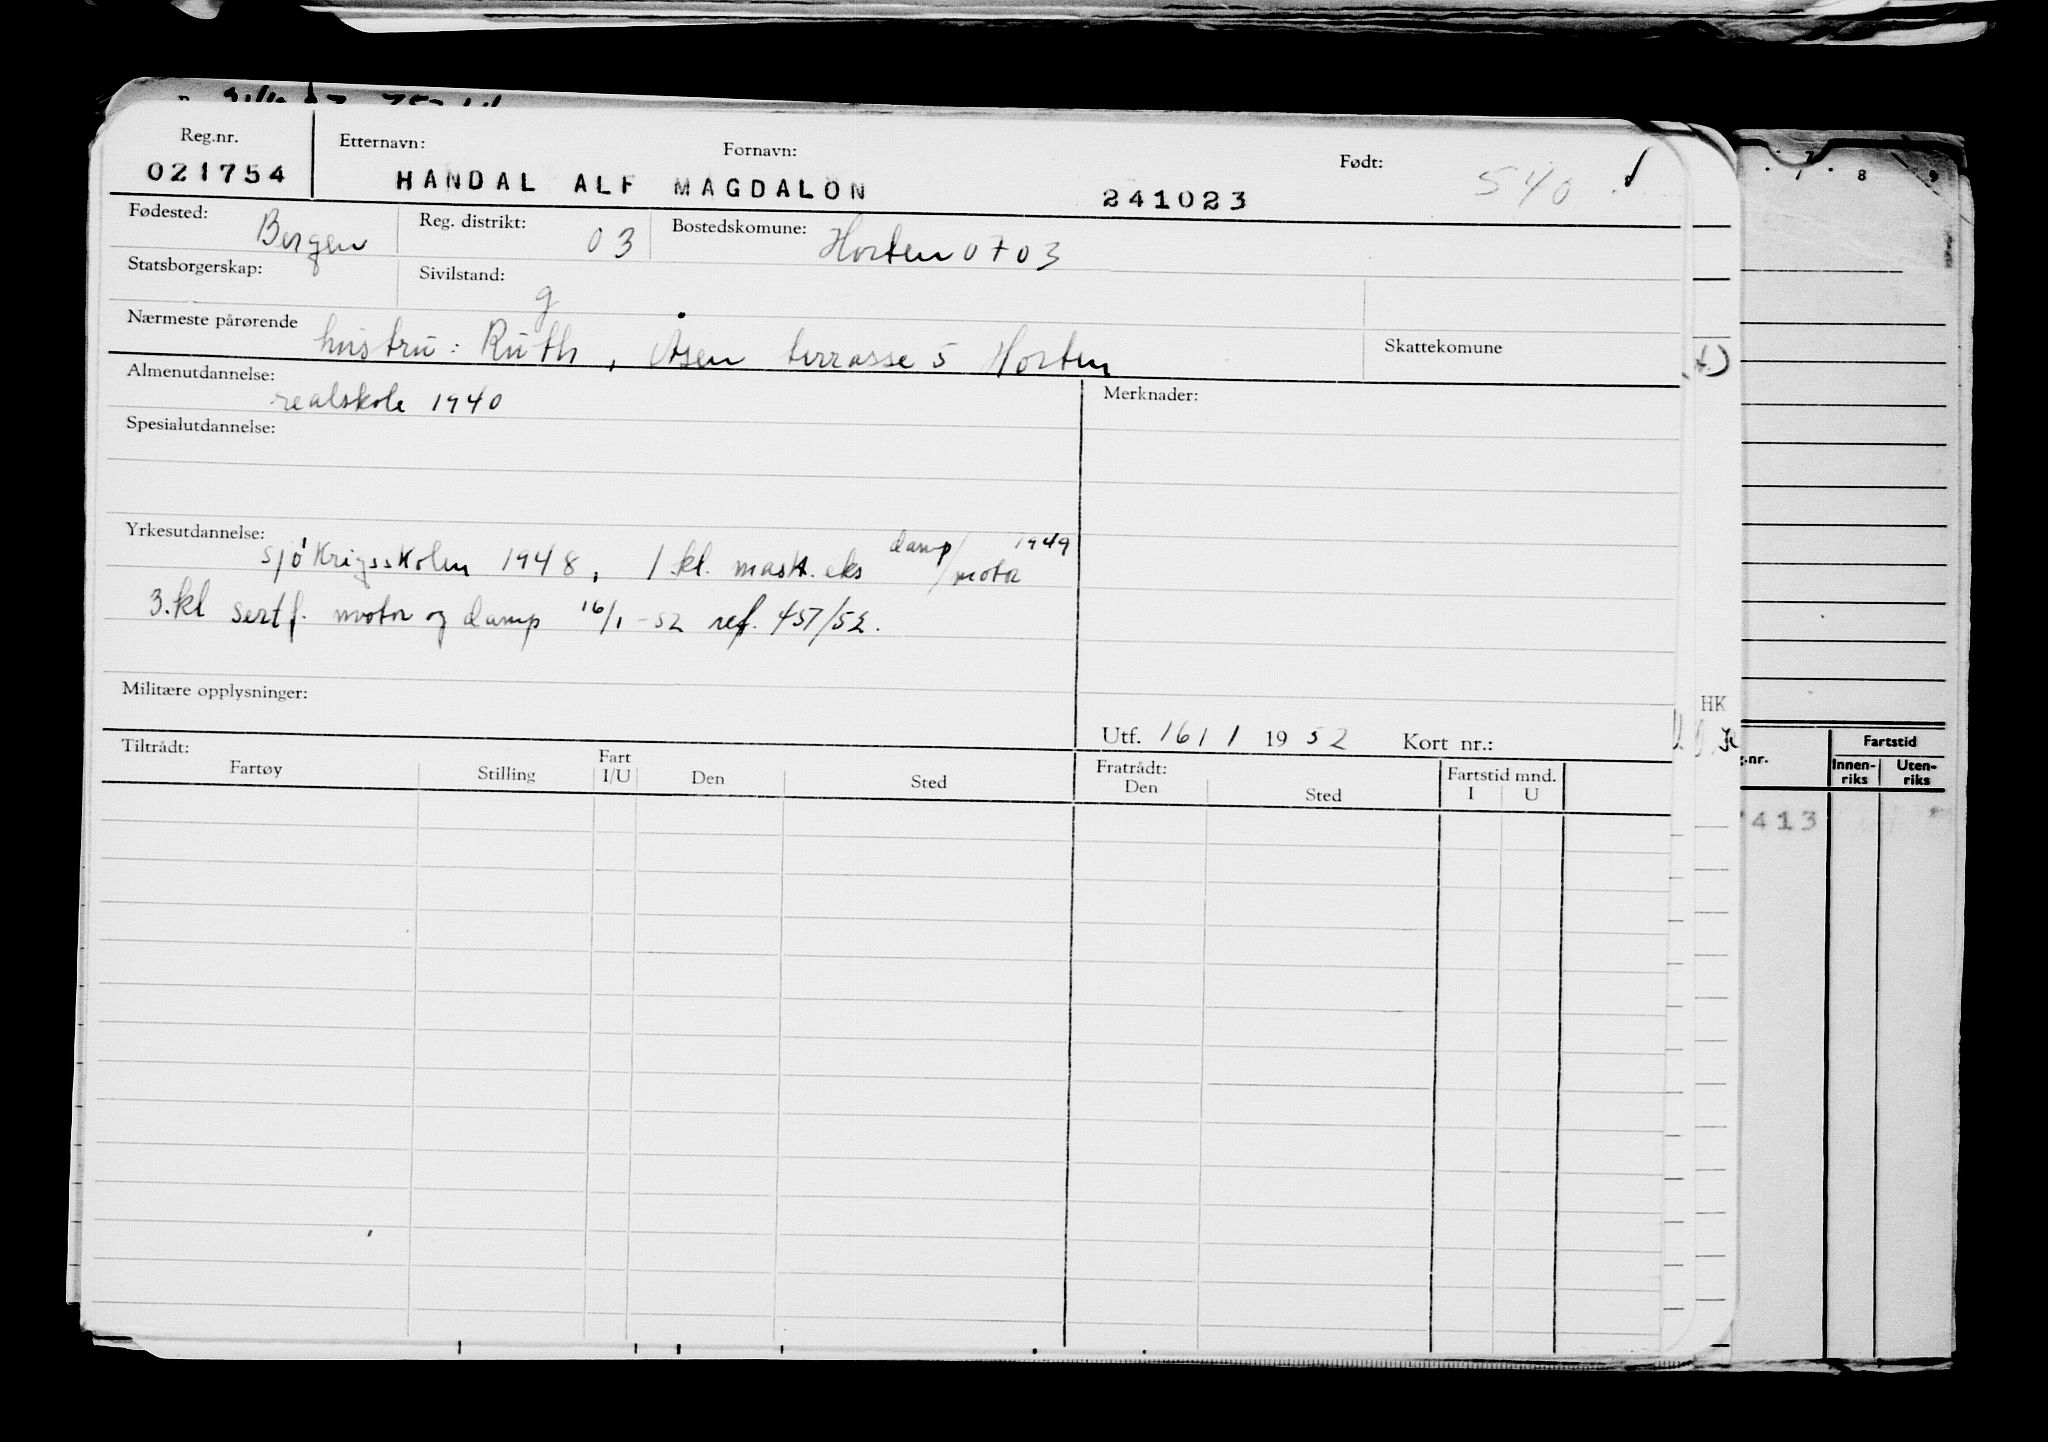 Reg.nr. Etternavn: Fornavn: Født:
021754 HANDAL ALF MAGDALON 241023 540
Fødested: Bergen Reg. distrikt: 03 Bostedskomune: Horten 0703
Statsborgerskap: Sivilstand: g
Nærmeste pårørende hustru: Ruth, Åsen terrasse 5 Horten Skattekomune
Almenutdannelse: realskole 1940 Merknader:
Spesialutdannelse:
Yrkesutdannelse: sjökrigsskolen 1948, 1 kl. mask. eks damp/motor 1949
3.kl sertf. motor og damp 16/1-52 ref. 457/52.
Militære opplysninger:
Utf. 16/1 1952 Kort nr.:
Tiltrådt: Fratrådt:
Fartøy Stilling Fart I/U Den Sted Den Sted Fartstid mnd. I U
7 8 9
HK
Fartstid
g.nr. Innen-riks Uten-riks
413